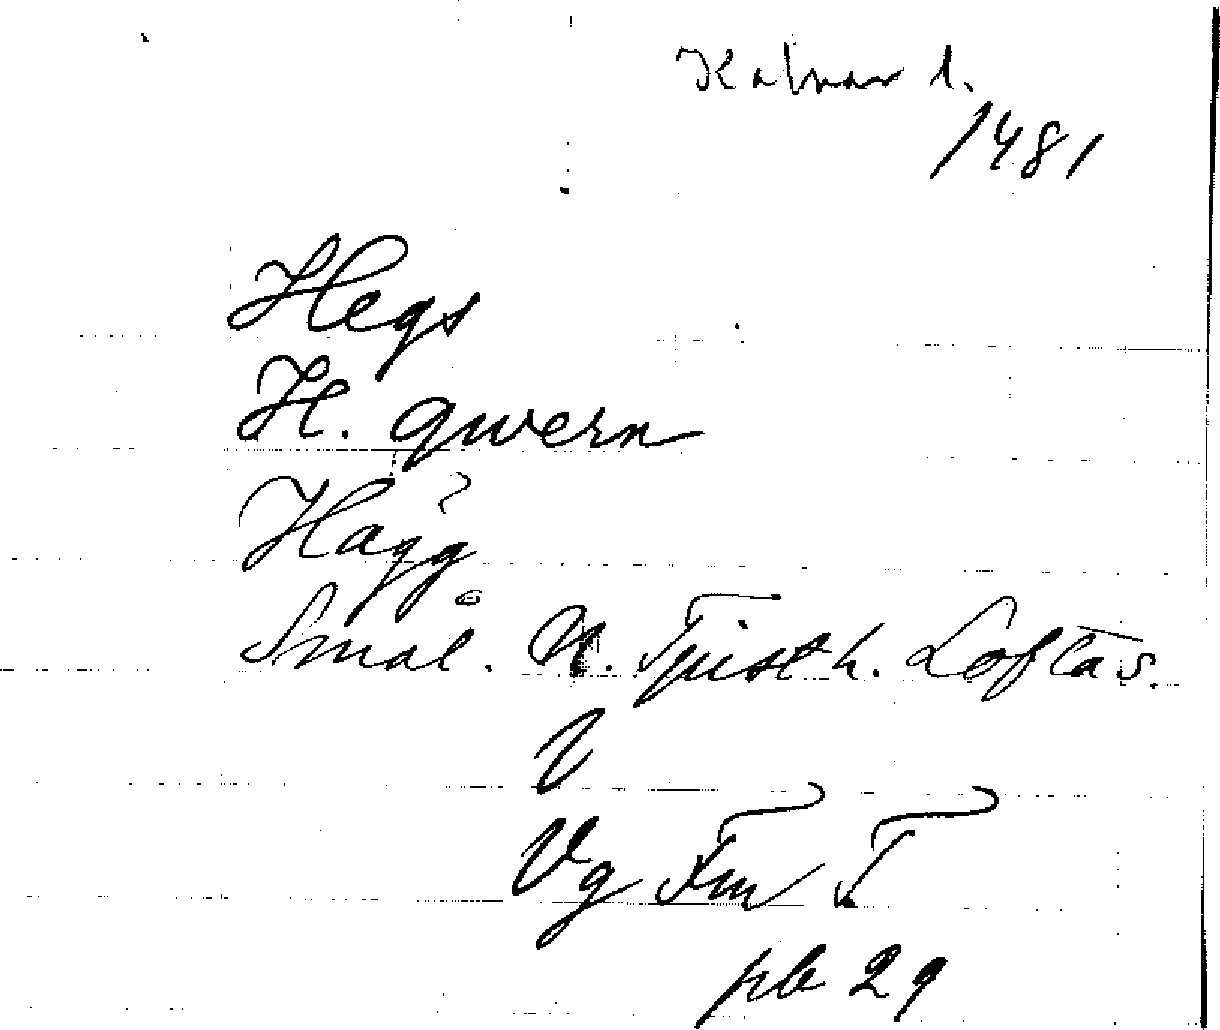 Kalmar l.
1481
Hegs
H. qwern
Hägg
Smål. N. Tjust h. Loftas.
V
Vg Fm T
pb 29